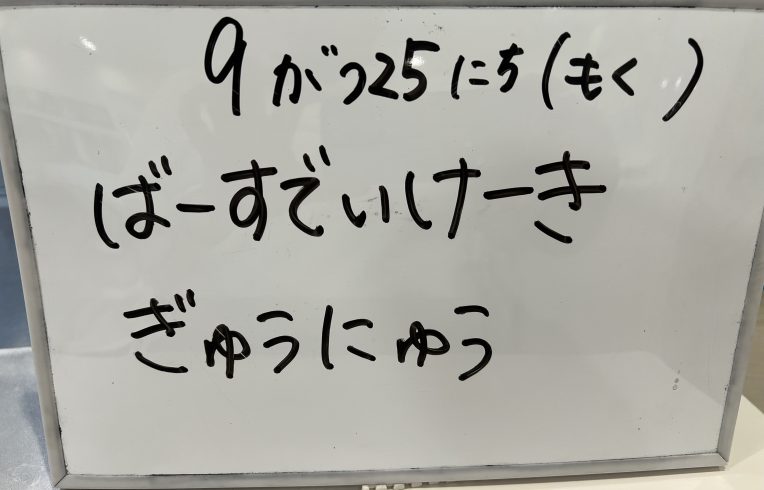 9がつ25にち(もく)
ばーすでいけーき
ぎゅうにゅう